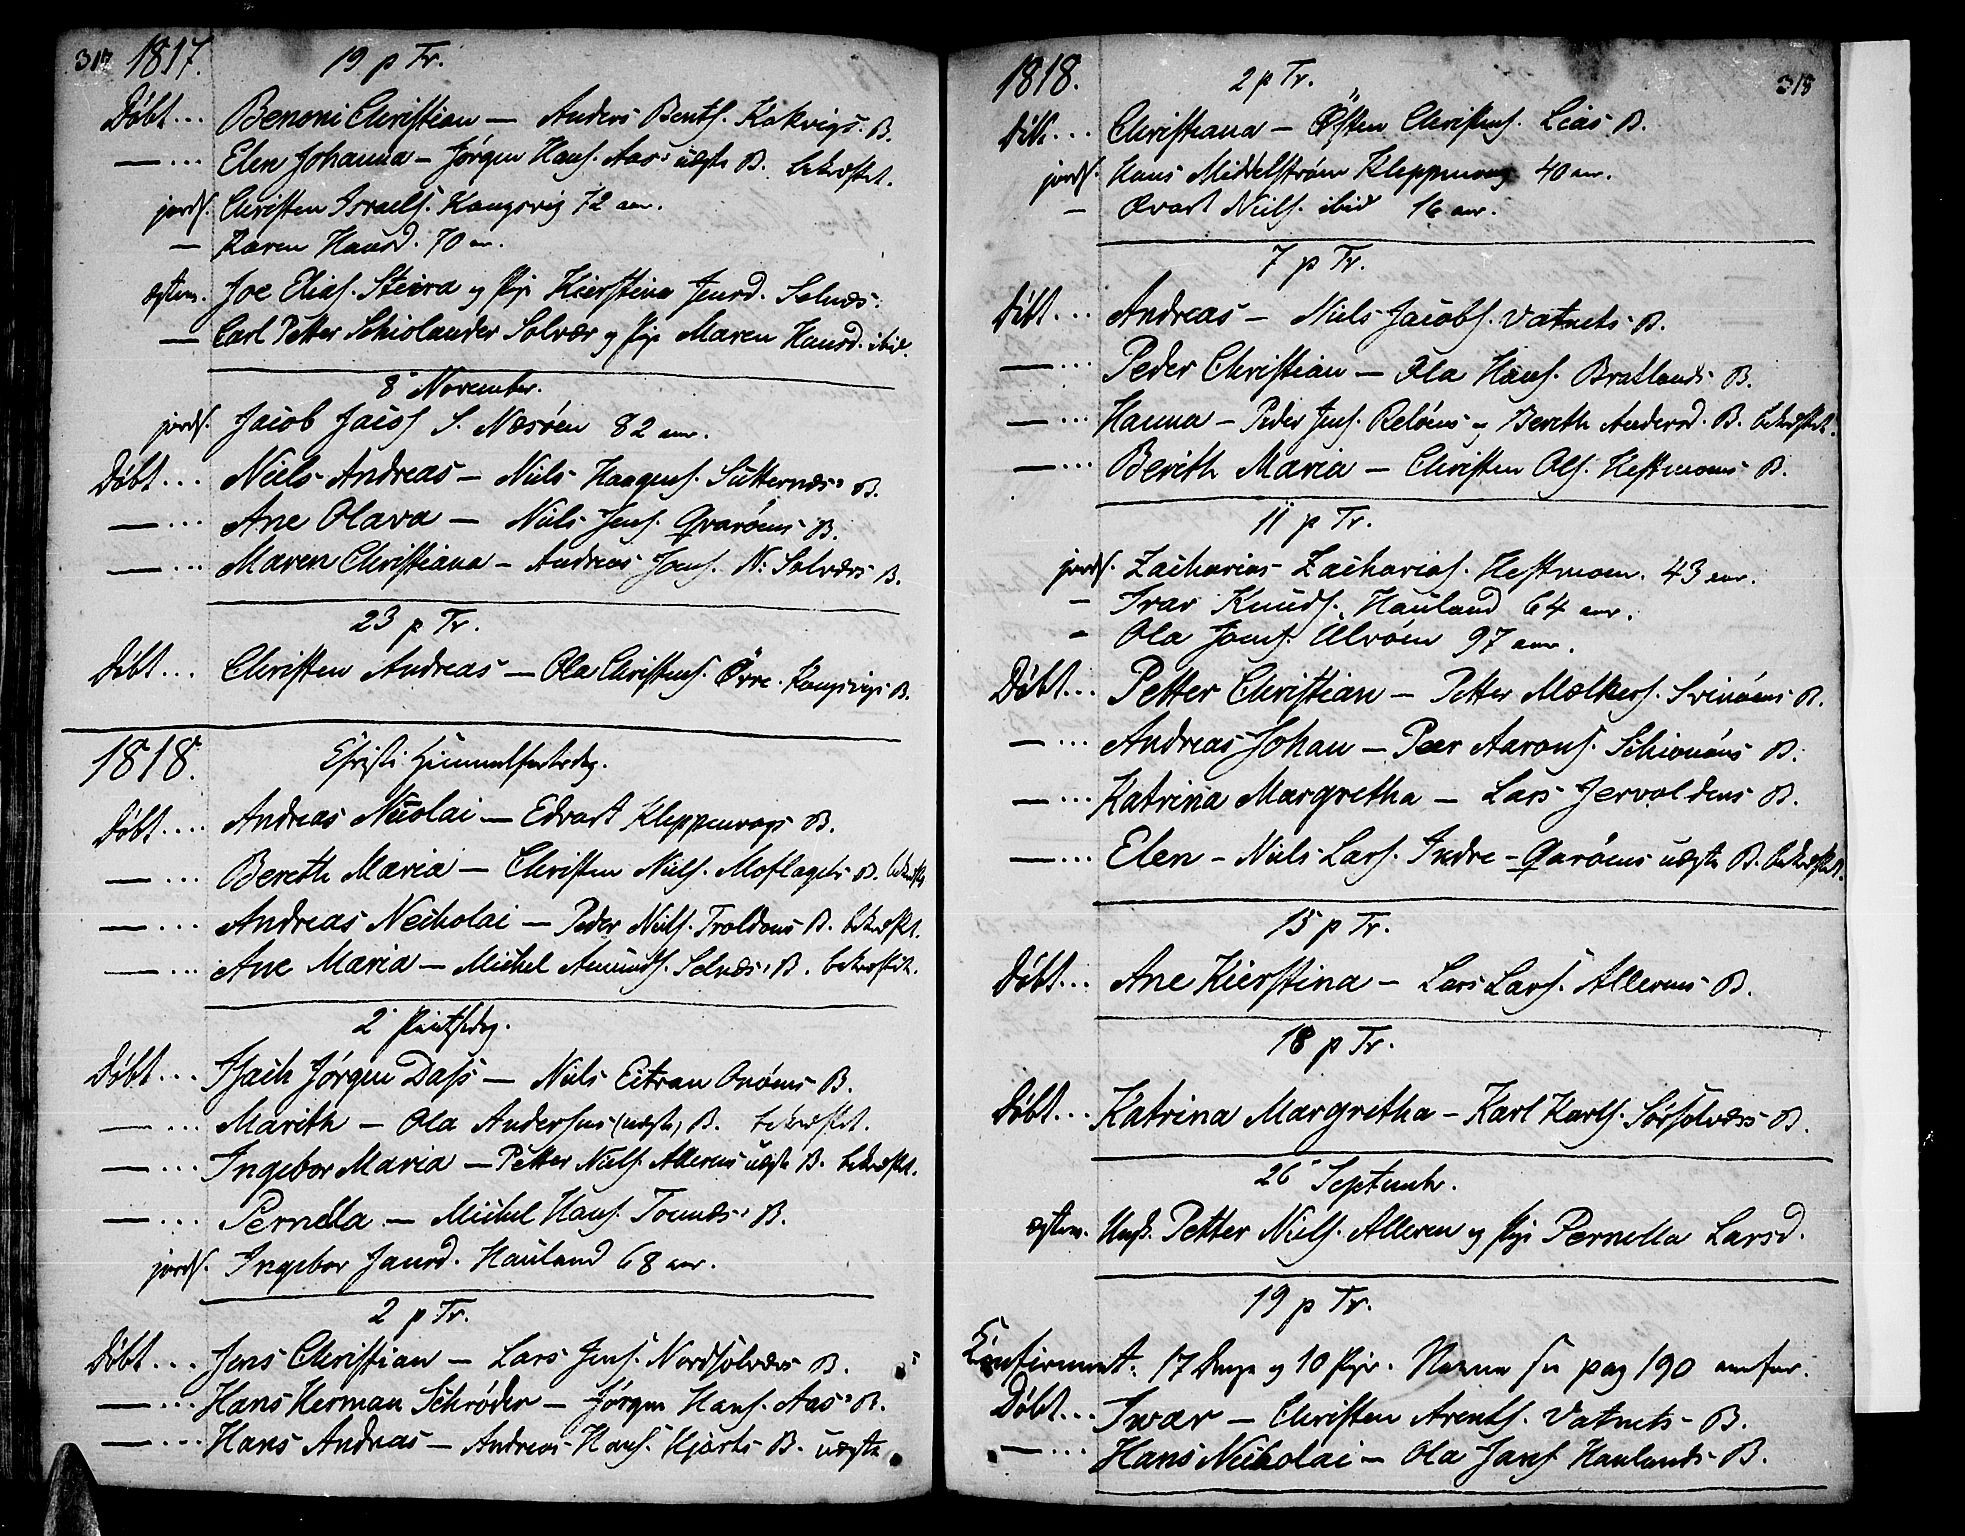 317 1817. 19 p Tr.
Døbt... Benoni Christian — Anders Bents. Kokvigs. B.
— ... Elen Johanna — Jörgen Hans. Aas: uægte B. bekræftet.
jords. Christen Israels. Kongsvig 72 aar.
— Karen Hansd. 70 aar.
ægtev. Joe Elias. Steira og Pige Kierstina Jensd. Selnæs.
— Carl Petter Schiolander Solvær og Pige Maren Hansd. ibid.
8 November.
jords. Jacob S. Næsöen 82 aar.
Døbt ... Niels Andreas — Niels Haagens. Sütternæs: B.
— ... Ane Olava — Niels Jens. Qvaröens B.
— ... Maren Christiana — Andreas N: Solværs B.
23 p Tr.
Døbt ... Christen Andreas — Ola Christens. Övre- Kongsvigs B.
1818. Christi Himmelfartsdag.
Døbt .... Andreas Nicolai — Edvart Kleppenvogs B.
— ... Bereth Maria — Christen Niels. Moflagets B.
— ... Andreas Neckolai — Peder Niels. B. bekræftet.
— ... Ane Maria — Michel Amunds. Selnæs: B. bekræftet.
2 Pintsedag.
Døbt ... Isach Jörgen Dass — Niels Eitran Onöens B.
— ... Marith — Ola Andersens (uægte) B. bekræftet.
— ... Ingebor Maria — Petter Niels. Allerens uægte B. bekræftet.
— ... Pernella — Michel Hans. Tonnæs: B.
jords. Ingebor Jansd. Hauland 68 aar.
2 p Tr.
Døbt ... Jens Christian — Lars Jens. Nordsolværs B.
— ... Hans Herman Schröder — Jörgen Hans. Aas: B.
— ... Hans Andreas — Andreas Hans. Hjarts B. uægte
1818. 2 p Tr. 318
Døbt ... Christiana — Östen Christens. Lias B.
jords. Hans Middelström Kleppenvog 40 aar.
— Evart Niels. ibid 16 aar.
7 p Tr.
Døbt ... Andreas — Niels Jacobs. Vatnets B.
— ... Peder Christian — Ola Hans. Bratlands B.
— ... Hanna — Peder Jens. Relöens og Bereth Andersd. B. bekræftet.
— ... Berith Maria — Christen Ols. Hestmons B.
11 p Tr.
jords. Zacharias Zacharias. Hestmoen. 43 aar.
— Ivar Knuds. Hauland 64 aar.
— Ola Ulvöen 97 aar.
Døbt ... Petter Christian — Petter Mælkers. Svinöens B.
— ... Andreas Johan — Peer Aarons. Schionöens B.
— ... Katrina Margretha — Lars Jervoldens B.
— ... Elen — Niels Lars. Indre-Qvaröens uægte B. bekræftet.
15 p Tr.
Døbt ... Ane Kierstina — Lars Lars. Allerens B.
18 p Tr.
Døbt ... Katrina Margretha — Karl Karls. Sörsolværs B.
26 Septembr.
ægtev. Ungk. Petter Niels. Alleren og Pige Pernella Larsd.
19 p Tr.
Konfirmeret. 17 Drenge og 10 Piger. Navne see pag 190 anfør.
Døbt ... Iwar — Christen Arents. Vatnets B.
— ... Hans Neckolai — Ola Jans. Haulands B.